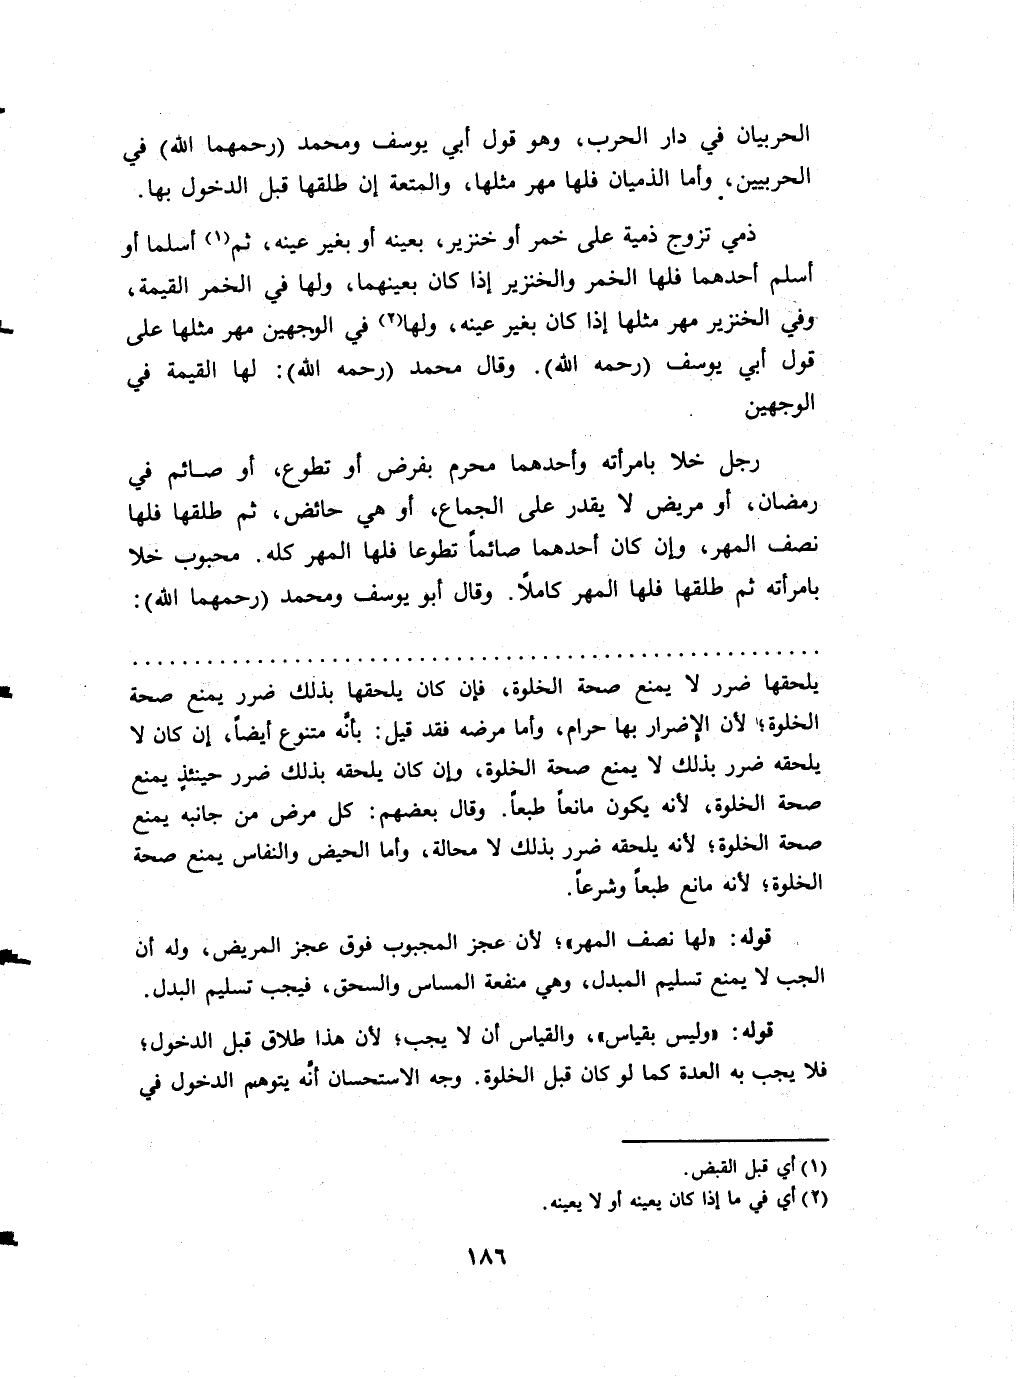 الحربيان في دار الحرب، وهو قول أبي يوسف ومحمد (رحمهما الله) في
الحربيين، وأما الذميان فلها مهر مثلها، والمتعة إن طلقها قبل الدخول بها.
ذمي تزوج ذمية على خمر أو خنزير، بعينه أو بغير عينه، ثم(١) أسلما أو
أسلم أحدهما فلها الخمر والخنزير إذا كان بعينهما، ولها في الخمر القيمة،
وفي الخنزير مهر مثلها إذا كان بغير عينه، ولها(٢) في الوجهين مهر مثلها على
قول أبي يوسف (رحمه الله). وقال محمد (رحمه الله): لها القيمة في
الوجهين
رجل خلا بامرأته وأحدهما محرم بفرض أو تطوع، أو صائم في
رمضان، أو مريض لا يقدر على الجماع، أو هي حائض، ثم طلقها فلها
نصف المهر، وإن كان أحدهما صائماً تطوعا فلها المهر كله. محبوب خلا
بامرأته ثم طلقها فلها المهر كاملًا. وقال أبو يوسف ومحمد (رحمهما الله):
يلحقها ضرر لا يمنع صحة الخلوة، فإن كان يلحقها بذلك ضرر يمنع صحة
الخلوة؛ لأن الإضرار بها حرام، وأما مرضه فقد قيل: بأنَّه متنوع أيضاً، إن كان لا
يلحقه ضرر بذلك لا يمنع صحة الخلوة، وإن كان يلحقه بذلك ضرر حينئذٍ يمنع
صحة الخلوة، لأنه يكون مانعاً طبعاً. وقال بعضهم: كل مرض من جانبه يمنع
صحة الخلوة؛ لأنه يلحقه ضرر بذلك لا محالة، وأما الحيض والنفاس يمنع صحة
الخلوة؛ لأنه مانع طبعاً وشرعاً.
قوله: «لها نصف المهر»؛ لأن عجز المجبوب فوق عجز المريض، وله أن
الجب لا يمنع تسليم المبدل، وهي منفعة المساس والسحق، فيجب تسليم البدل.
قوله: «وليس بقياس»، والقياس أن لا يجب؛ لأن هذا طلاق قبل الدخول؛
فلا يجب به العدة كما لو كان قبل الخلوة. وجه الاستحسان أنَّه يتوهم الدخول في
(١) أي قبل القبض.
(٢) أي في ما إذا كان يعينه أو لا يعينه.
١٨٦